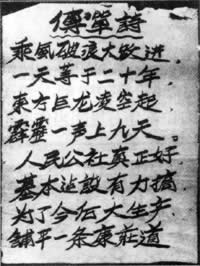 傳單詩
乘風破浪大跃进.
一天等于二十年.
東方巨龙凌空起
霹靂一声上九天.
人民公社真正好
基本建設有力搞.
为了今后大生产.
鋪平一条康莊道